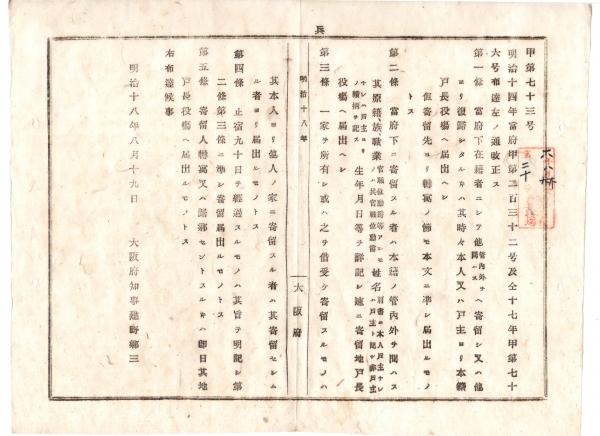 甲第七十三号
明治十四年當府甲第二百三十二号及仝十七年甲第七十
六号布達左ノ通改正ス
第一條 當府下在籍者ニシテ他管内外ヲ問ハスヘ寄留シ又ハ他
ヨリ復歸シタルキハ其時々本人又ハ戸主ヨリ本籍
戸長役塲ヘ届出ヘシ
但寄留先ヨリ轉寓ノ節モ本文ニ準シ届出ルモノ
トス
第二條 當府下ニ寄留スル者ハ本籍ノ管内外ヲ問ハス
其原籍、族、職業 姓名
生年月日等ヲ詳記シ速ニ寄留地戸長
役塲ヘ届出ヘシ
第三條 一家ヲ所有シ或ハ之ヲ借受ケ寄留スルモノハ
兵
明治十八年
大阪府
其本人ヨリ他人ノ家ニ寄留スル者ハ其寄留セシム
ル者ヨリ届出ルモノトス
第四條 止宿九十日ヲ經過スルモノハ其旨ヲ明記シ第
二條第三條ニ準シ寄留届出ルモノトス
第五條 寄留人轉寓又ハ歸郷セントスルキハ即日其地
戸長役塲ヘ届出ルモノトス
右布達候事
明治十八年八月十九日 大阪府知事建野郷三